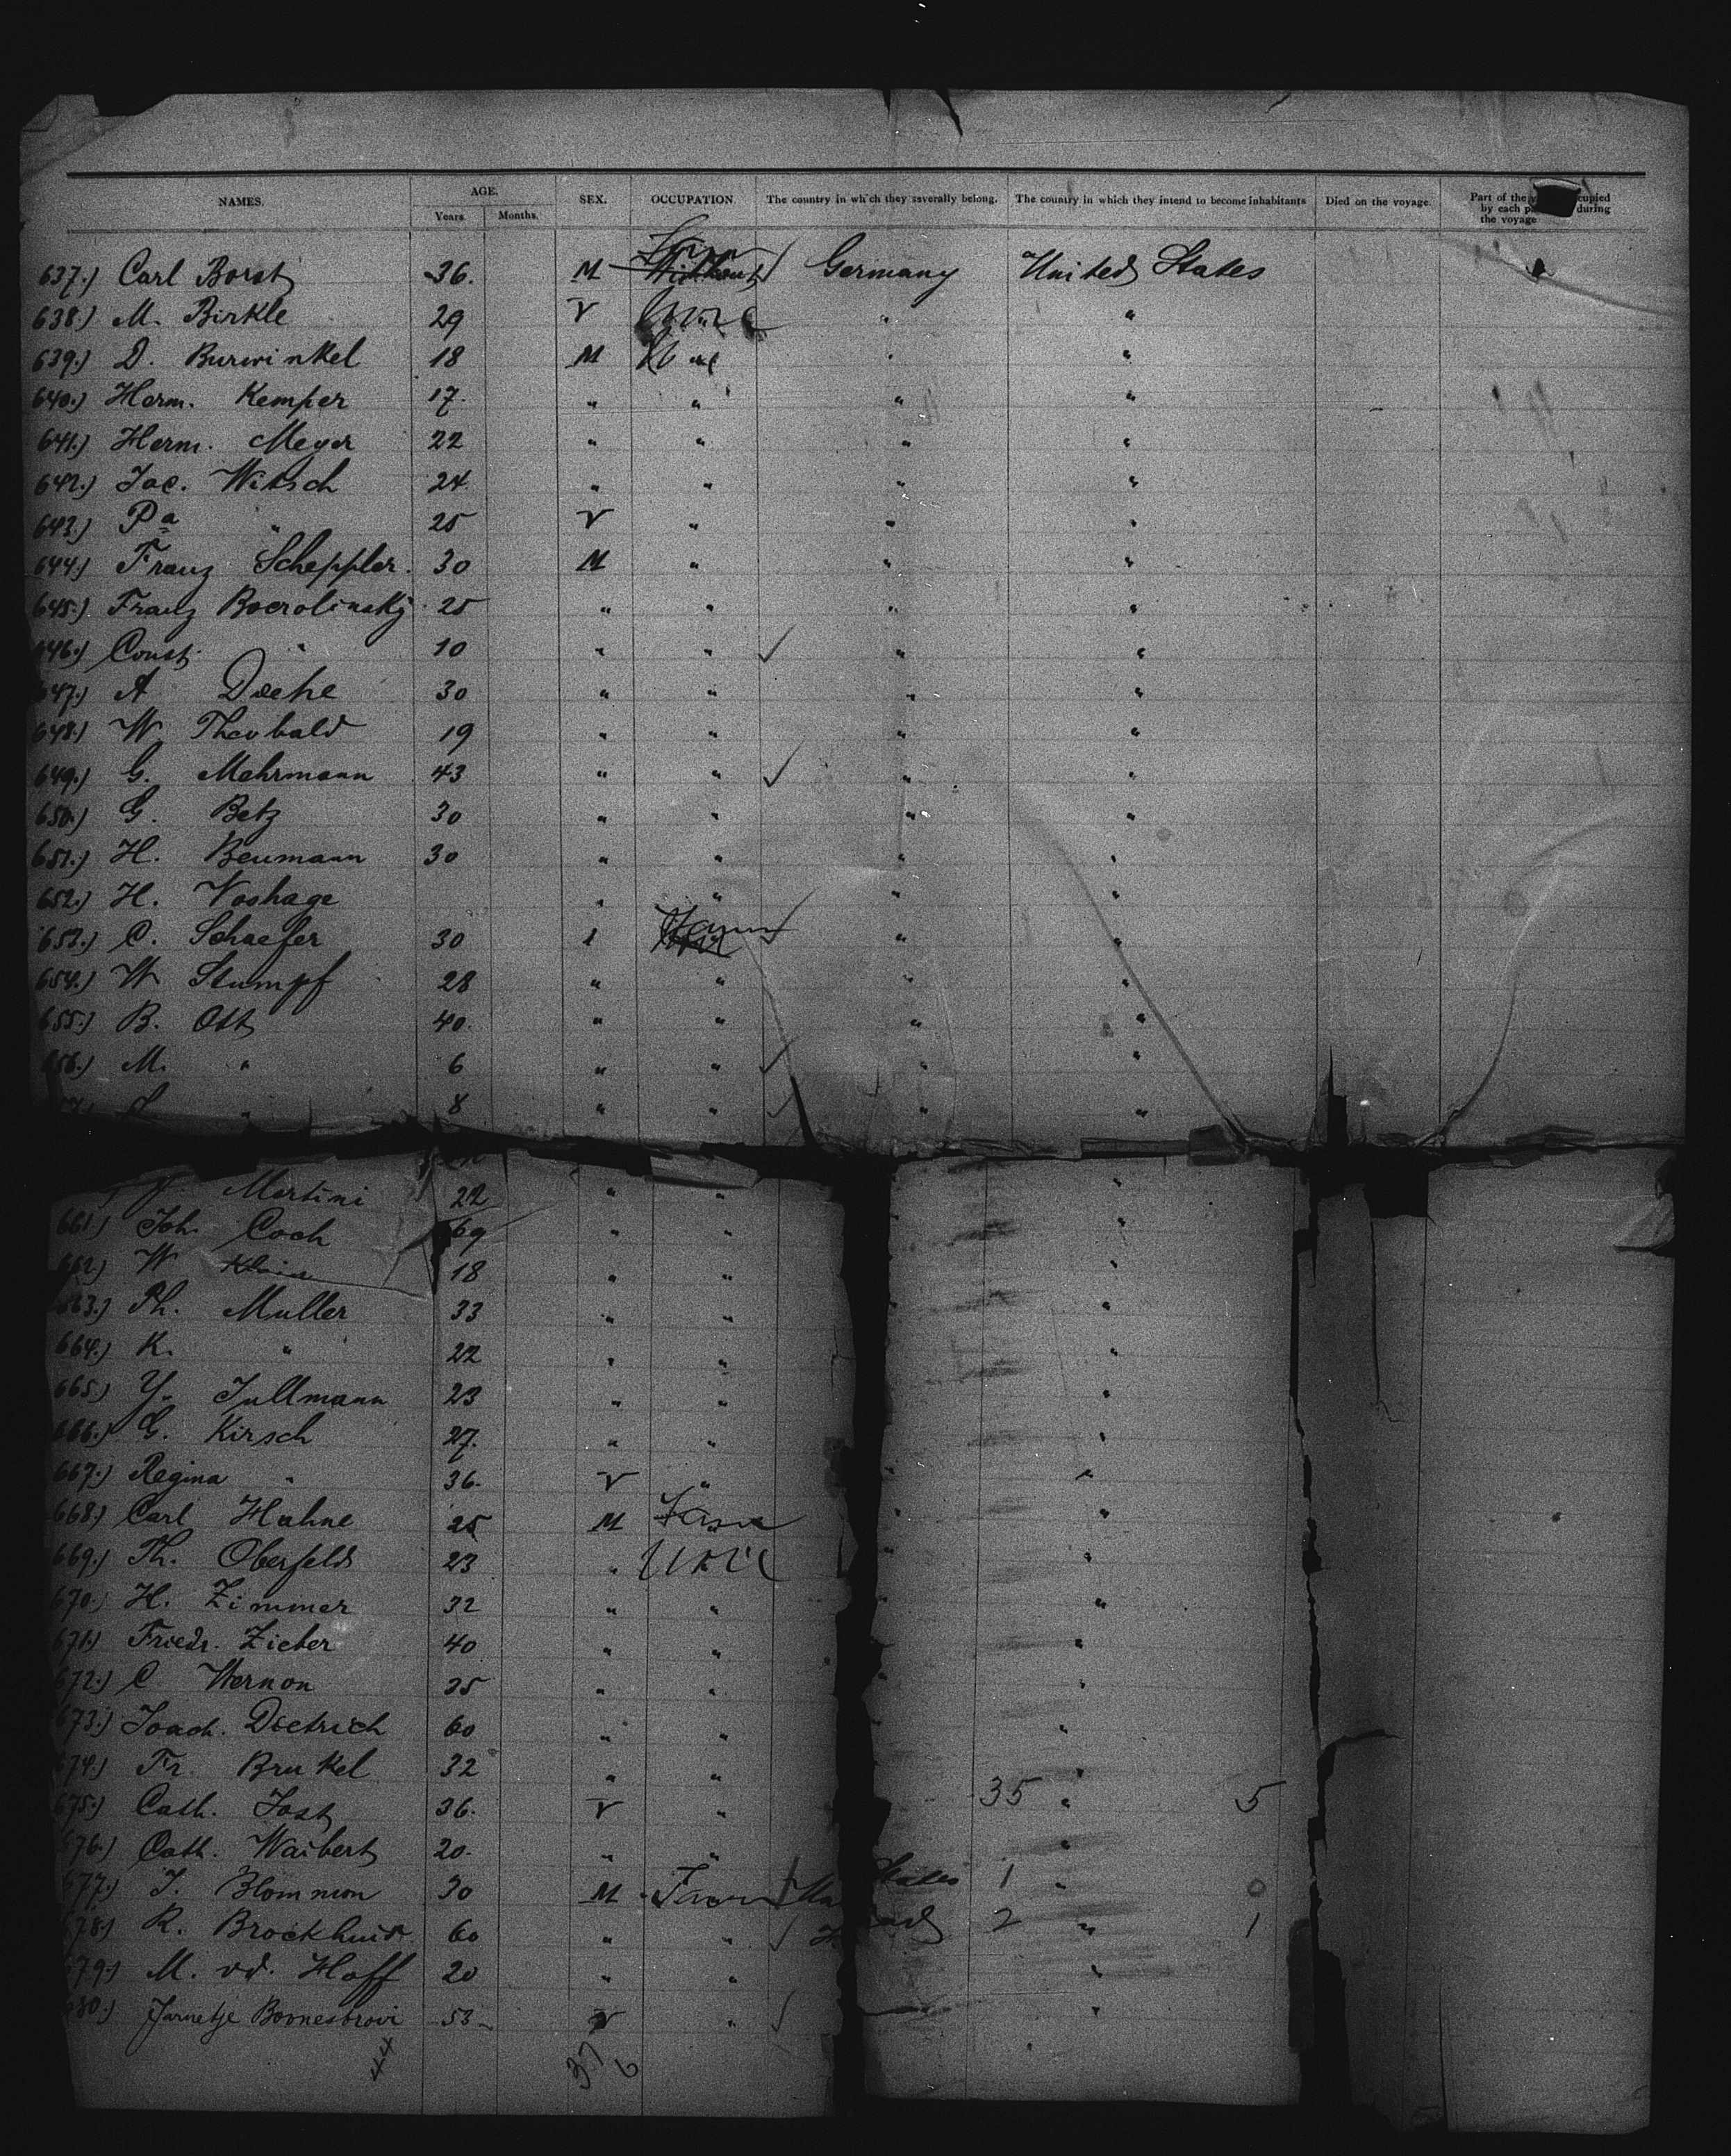 NAMES. AGE. SEX. OCCUPATION. The country in which they severally belong. The country in which they intend to become inhabitants Died on the voyage. Part of the by each during the voyage
Years. Months.
637.) Carl Borst 36. M Without Germany United States
638.) M. Birkle 29 V " " "
639.) D. Burwinkel 18 M " " "
640.) Herm. Kemper 17. " " " "
641.) Herm. Meyer 22 " " " "
642.) Jac. Witsch 24. " " " "
643.) Pa " 25 V " " "
644.) Franz Scheppler. 30 M " " "
645.) Franz 25 " " " "
646.) Const. " 10 " " " "
647.) A Diehe 30 " " " "
648.) W. Theobald 19 " " " "
649.) G. Mehrmann 43 " " " "
650.) G. Betz 30 " " " "
651.) H. Beumann 30 " " " "
652.) H. Voshage " " " "
653.) C. Schaefer 30 " " "
654.) W. Stumpf 28 " " " "
655.) B. Ott 40. " " " "
656.) M. " 6 " " " "
" 8 " " " "
Martini 22 " " "
661.) Joh. Coch 69 " " "
662.) W. Klein 18 " " "
663.) Ph. Muller 33 " " "
664.) K. " 22 " " "
665.) Y. Tullmann 23 " " "
666.) G. Kirsch 27. " " "
667.) Regina " 36. V " "
668.) Carl Hahne 25 M "
669.) Th. Oberfeld 23 " "
670.) H. Zimmer 32 " " "
671.) Friedr. Zieber 40 " " "
672.) C. Wernon 35 " " "
673.) Joach. Dietrich 60 " " "
674.) Fr. Brukel 32 " " "
675.) Cath. Jost 36. V " 35 " 5
676.) Cath. Waibert 20. " " "
677.) J. Blommon 30 M States 1 " 0
678.) R. Brockhuis 60 " " 2 " 1
679.) M. vd. Hoff 20 " " "
680.) 53 V " "
44 37 6